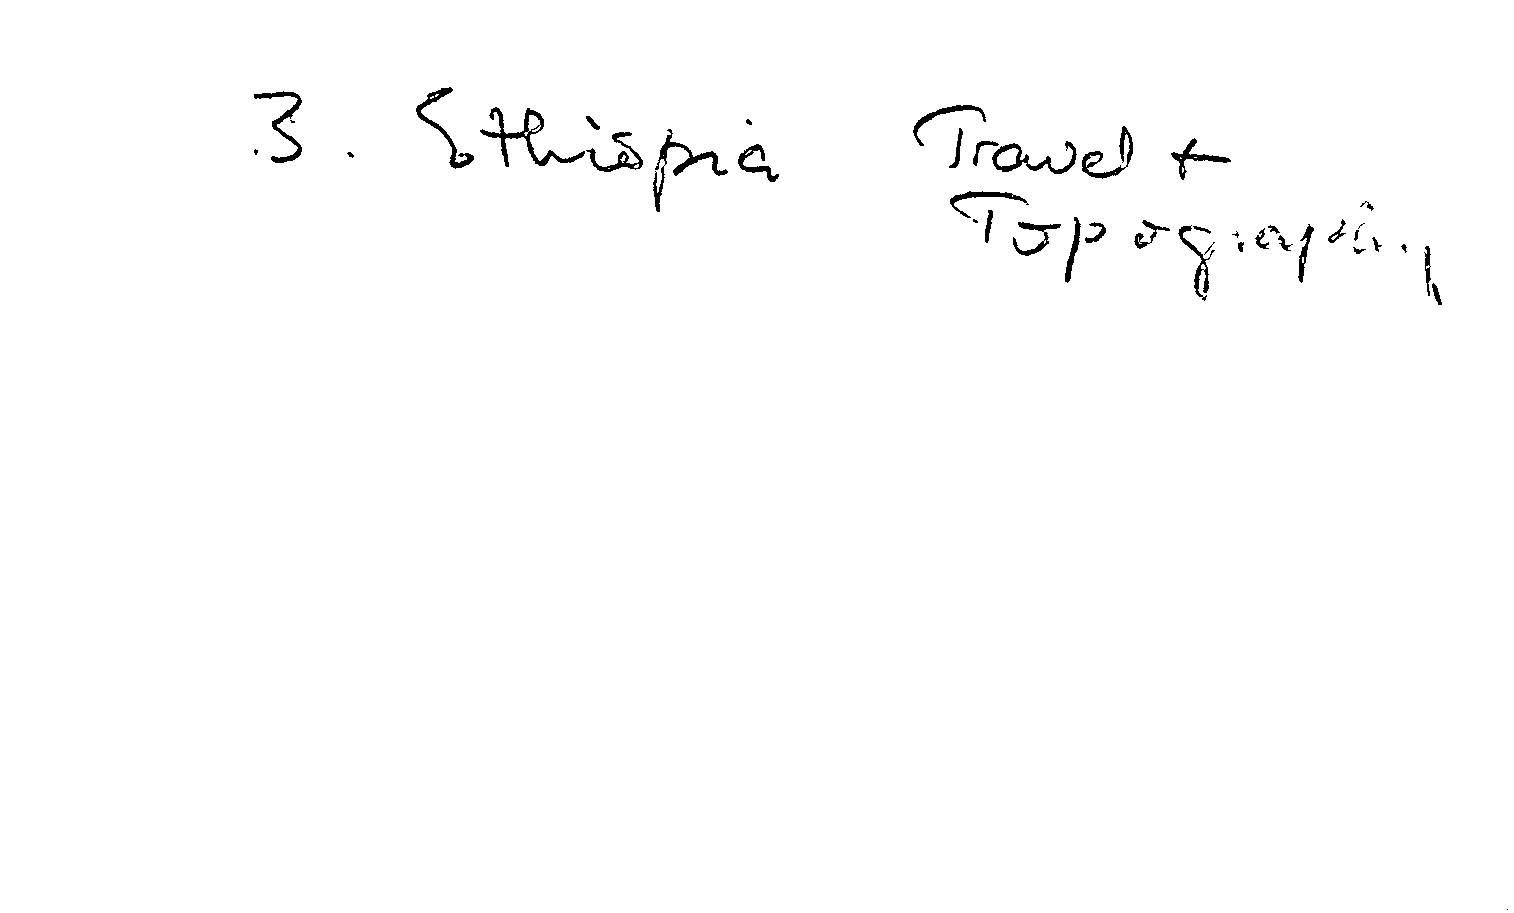 3. Ethiopia Travel +
Topography